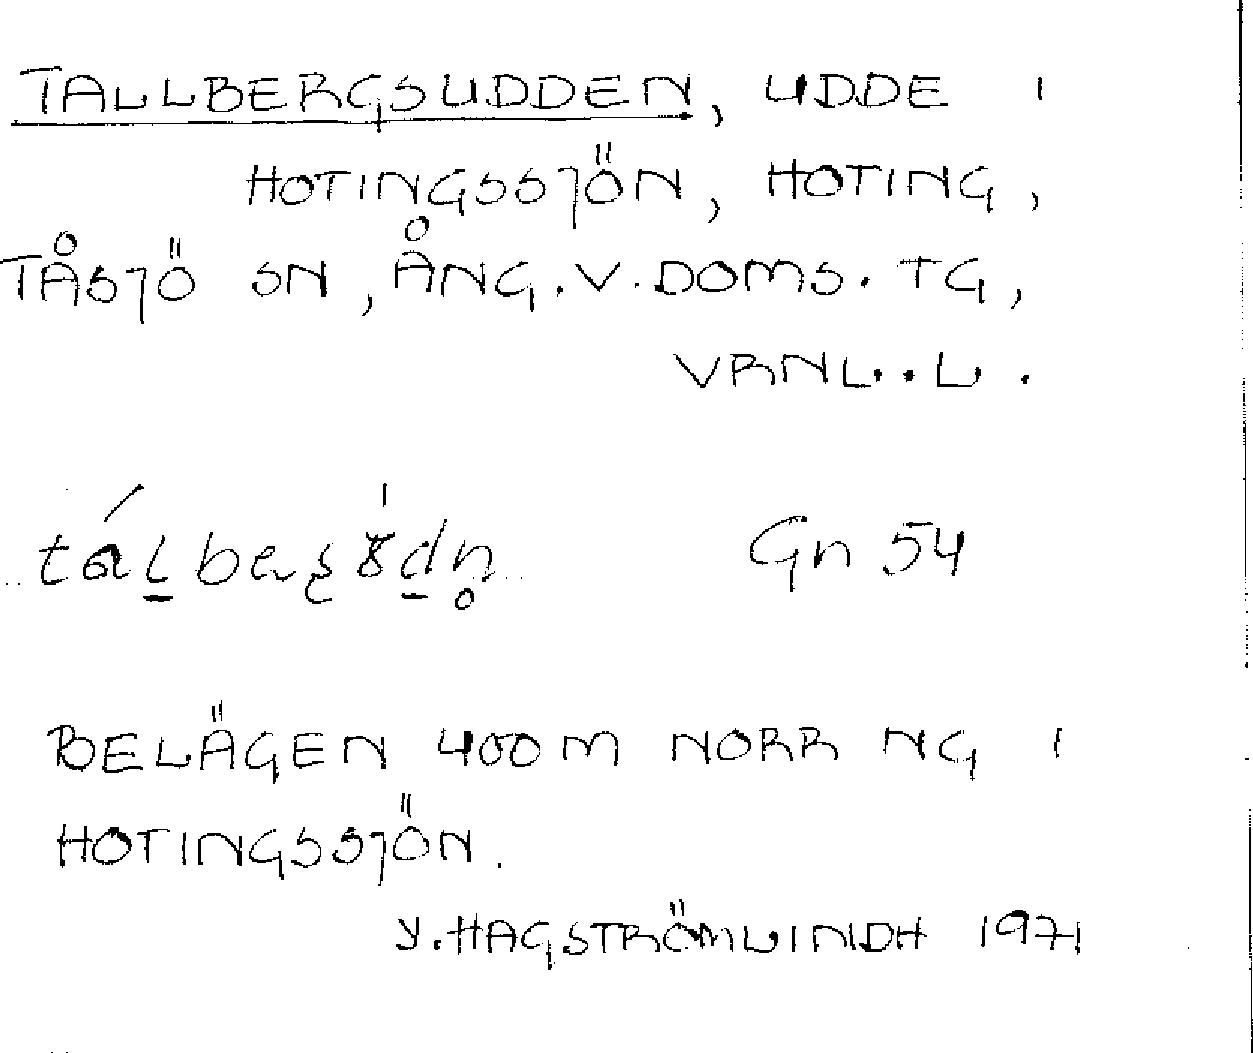 TALLBERGSUDDEN, UDDE I
HOTINGSSJÖN, HOTING,
TÅSJÖ SN, ÅNG. V. DOMS. TG,
VRNL..L.
Gn 54
BELÄGEN 400 M NORR NG I
HOTINGSSJÖN.
Y. HAGSTRÖMLINDH 1971